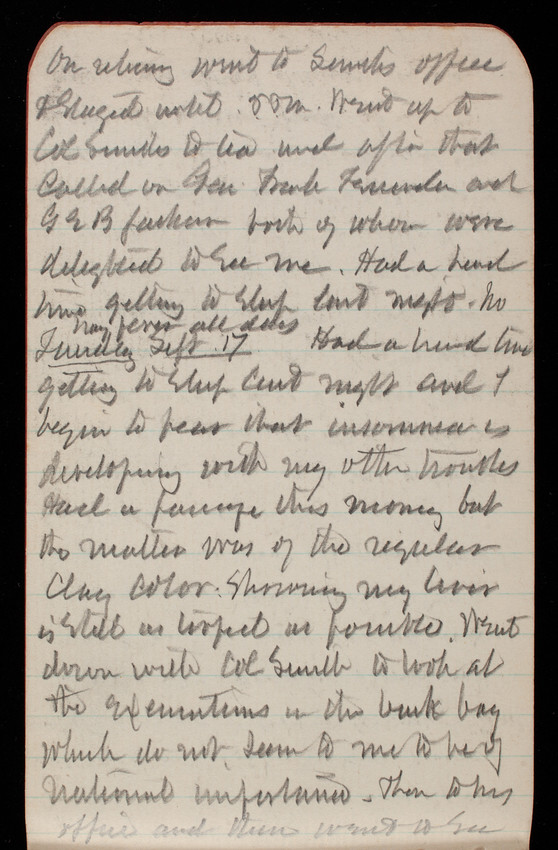 On retiring went to Smiths office
& staged until . Went up to
Col Smiths to tea and after that
Called on Gen Frank and
G E B Jackson both of whom were
delighted to see me. Had a hard
time getting to sleep last night. No
hay fever all day
Tuesday Sept. 17 Had a hard time
getting to sleep last night and I
begin to fear that insomnia is
developing with my other troubles
Had a passage this morng but
the matter was of the regular
Clay Color. Showing my liver
is still as torpid as possible. Went
down with Col Smith to look at
the excavations in the back bay
which do not seem to me to be of
national importance. Then to his
office and then went to see